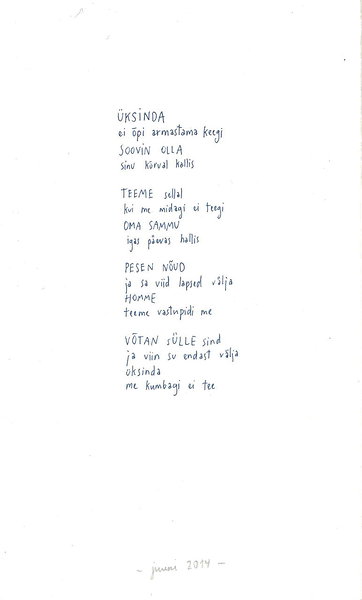 ÜKSINDA
ei õpi armastama keegi
SOOVIN OLLA
sinu kõrval kallis
TEEME sellal
kui me midagi ei teegi
OMA SAMMU
igas päevas hallis
PESEN NÕUD
ja sa viid lapsed välja
HOMME
teeme vastupidi me
VÕTAN SÜLLE sind
ja viin su endast välja
üksinda
me kumbagi ei tee
- juuni 2014 -